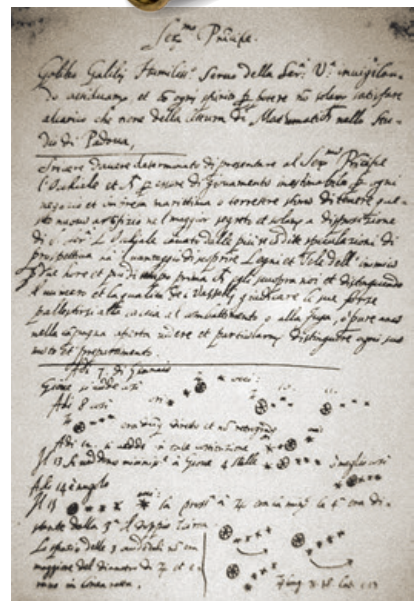 Ser.mo Principe.
Galileo Galilej Humiliss.o Servo della Ser.a V.a invigilan-
do assiduam.te, et cō ogni spirito p potere nō solam.te satisfare
al carico che tiene della lettura di Matematiche nello Stu-
dio di Padova,
Scrive d'avere determinato di presentare al Ser.mo Principe
l'Occhiale et p essere di giovamento inestimabile p ogni
negozio et impresa marittima o terrestre stimo di tenere que-
sto nuovo artifizio nel maggior segreto et solam.te a disposizione
di S. Ser.a L'Occhiale cavato dalle più recondite speculazioni di
prospettiva ha il vantaggio di scoprire Legni et Vele dell'inimico
p due hore et più di tempo prima ch'egli scuopra noi et distinguendo
il numero et la qualità de i Vasselli giudicare le sue forze
pallestirsi alla caccia al combattimento o alla fuga, o pure anco
nella campagna aperta vedere et particolarm.te distinguere ogni suo
moto et preparamento.
Adi 7 di Gennaio
Giove si vedde così
Adi 8 così
era diretto et nō retrogrado
Adi 12 si vedde in tale costituzione
Il 13 si veddono vicinissime a Giove 4 stelle meglio così
Adi 14 è nugolo
Il 15 la pross.a a ♃ era la min.e la 4.a era di-
stante dalla 3.a il doppio
Lo spazio delle 3 occidentali nō era
maggiore del diametro di ♃ et e-
rano in linea retta.